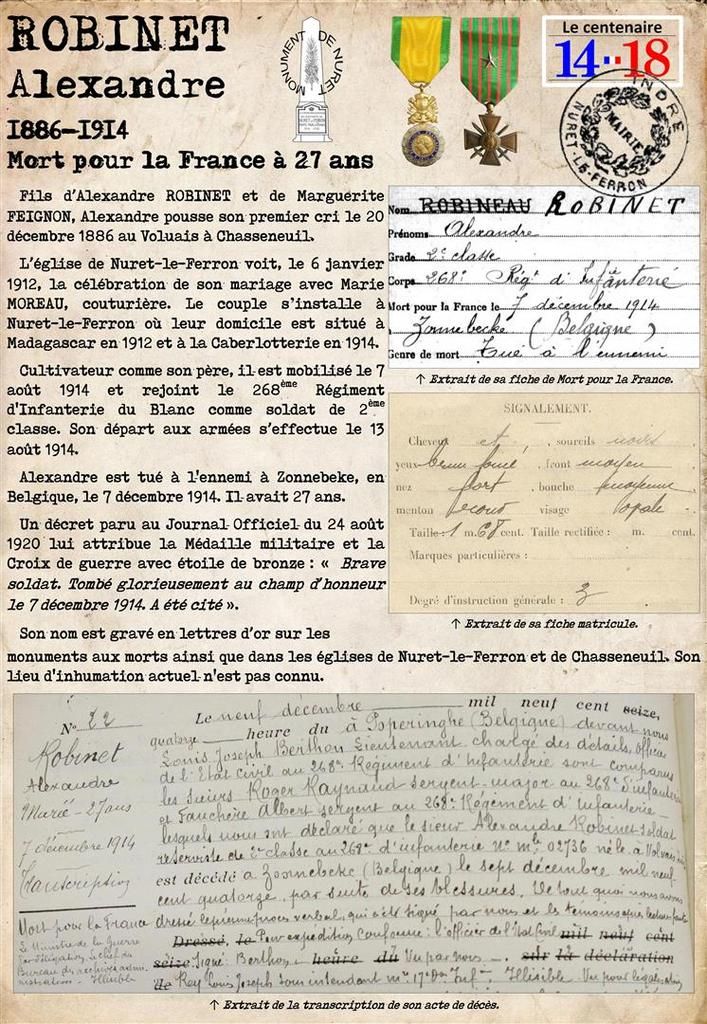 ROBINET
Alexandre
1886-1914
Mort pour la France à 27 ans
MONUMENT DE NURET
Le centenaire
14..18
INDRE
MAIRIE
NURET-LE-FERRON
Fils d'Alexandre ROBINET et de Marguerite
FEIGNON, Alexandre pousse son premier cri le 20
décembre 1886 au Voluais à Chasseneuil.
L'église de Nuret-le-Ferron voit, le 6 janvier
1912, la célébration de son mariage avec Marie
MOREAU, couturière. Le couple s'installe à
Nuret-le-Ferron où leur domicile est situé à
Madagascar en 1912 et à la Caberlotterie en 1914.
Cultivateur comme son père, il est mobilisé le 7
août 1914 et rejoint le 268ème Régiment
d'Infanterie du Blanc comme soldat de 2ème
classe. Son départ aux armées s'effectue le 13
août 1914.
Alexandre est tué à l'ennemi à Zonnebeke, en
Belgique, le 7 décembre 1914. Il avait 27 ans.
Un décret paru au Journal Officiel du 24 août
1920 lui attribue la Médaille militaire et la
Croix de guerre avec étoile de bronze : « Brave
soldat. Tombé glorieusement au champ d'honneur
le 7 décembre 1914. A été cité ».
Son nom est gravé en lettres d'or sur les
monuments aux morts ainsi que dans les églises de Nuret-le-Ferron et de Chasseneuil. Son
lieu d'inhumation actuel n'est pas connu.
Nom ROBINEAU ROBINET
Prénoms Alexandre
Grade 2e classe
Corps 268e Régt d'Infanterie
Mort pour la France le 7 décembre 1914
à Zonnebecke (Belgique)
Genre de mort Tué à l'ennemi
↑ Extrait de sa fiche de Mort pour la France.
SIGNALEMENT.
Cheveux et, sourcils noirs
yeux foncé, front moyen
nez fort, bouche moyenne
menton rond visage ovale
Taille: 1 m. 68 cent. Taille rectifiée: m. cent.
Marques particulières :
Degré d'instruction générale : 3
↑ Extrait de sa fiche matricule.
N° 22
Robinet
Alexandre
Marié - 27 ans
7 décembre 1914
Transcription
Mort pour la France
Le Ministre de la Guerre
Par délégation, le chef du
Bureau des archives admi-
nistratives - Illisible
Le neuf décembre mil neuf cent seize,
quatorze heure du à Poperinghe (Belgique) devant nous
Louis Joseph Berthon Lieutenant chargé des détails, officier
de l'Etat Civil au 268e Régiment d'Infanterie sont comparus
les sieurs Roger Raynaud sergent-major au 268e d'infanterie
et Fauchère Albert sergent au 268e Régiment d'Infanterie
lesquels nous ont déclaré que le sieur Alexandre Robinet soldat
réserviste de 2e classe au 268e d'infanterie N° mle 02736 né à
est décédé à Zoonnebecke (Belgique) le sept décembre mil neuf
cent quatorze, par suite de ses blessures. De tout quoi nous avons
dressé le présent procès verbal, qui a été signé par nous et les témoins après lecture faite
Dressé, le Pour expédition conforme : l'officier de l'Etat Civil mil neuf cent
seize Signé : Berthon heure du Vu par nous sur la déclaration
de Rey Louis Joseph Sous intendant Illisible. Vu pour légalisation
↑ Extrait de la transcription de son acte de décès.